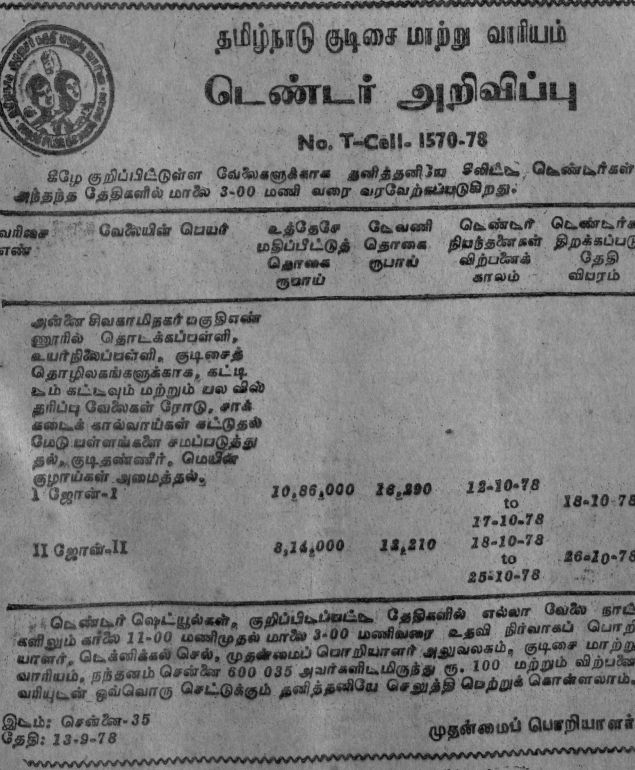 தமிழ்நாடு குடிசை மாற்று வாரியம்
டெண்டர் அறிவிப்பு
No. T-Cell. 1570-78
கீழே குறிப்பிட்டுள்ள வேலைகளுக்காக தனித்தனியே சீலிட்ட டெண்டர்கள்
அந்தந்த தேதிகளில் மாலை 3-00 மணி வரை வரவேற்கப்படுகிறது.
வரிசை வேலையின் பெயர் உத்தேச டேவணி டெண்டர் டெண்டர்க
எண் மதிப்பிட்டுத் தொகை நிபந்தனைகள் திறக்கப்படு
தொகை ரூபாய் விற்பனைக் தேதி
ரூபாய் காலம் விபரம்
அன்னை சிவகாமிநகர் பகுதிஎண்
ணூரில் தொடக்கப்பள்ளி,
உயர்நிலைப்பள்ளி, குடிசைத்
தொழிலகங்களுக்காக, கட்டி
டம் கட்டவும் மற்றும் பல விஸ்
தரிப்பு வேலைகள் ரோடு, சாக்
கடைக் கால்வாய்கள் கட்டுதல்
மேடு பள்ளங்களை சமப்படுத்து
தல், குடிதண்ணீர், மெயின்
குழாய்கள் அமைத்தல்.
I ஜோன்-I 10,86,000 16,290 12-10-78 to 17-10-78 18-10-78
II ஜோன்-II 8,14,000 12,210 18-10-78 to 25-10-78 26-10-78
டெண்டர் ஷெட்யூல்கள், குறிப்பிடப்பட்ட தேதிகளில் எல்லா வேலை நாட்
களிலும் காலை 11-00 மணிமுதல் மாலை 3-00 மணிவரை உதவி நிர்வாகப் பொறி
யாளர், டெக்னிக்கல் செல், முதன்மைப் பொறியாளர் அலுவலகம், குடிசை மாற்று
வாரியம், நந்தனம் சென்னை 600 035 அவர்களிடமிருந்து ரூ. 100 மற்றும் விற்பனை
வரியுடன் ஒவ்வொரு செட்டுக்கும் தனித்தனியே செலுத்தி பெற்றுக் கொள்ளலாம்.
இடம்: சென்னை-35
தேதி: 13-9-78
முதன்மைப் பொறியாளர்